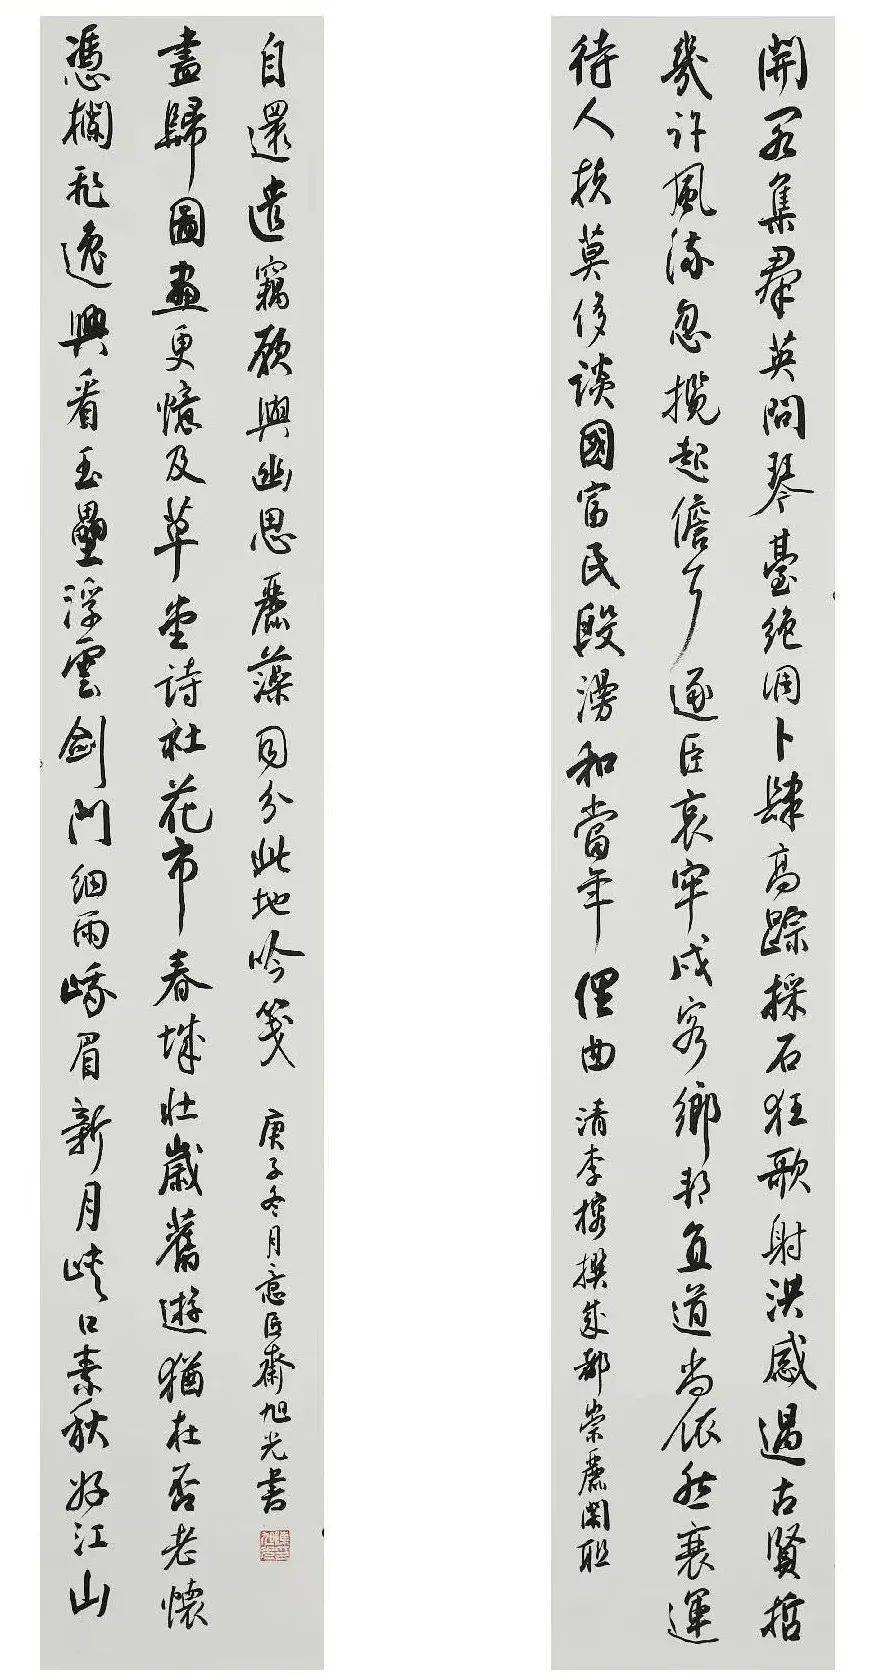 開閣集群英問琴臺絕調卜肆高蹤採石狂歌射洪感遇古賢哲
幾許風流忽攬起儋耳逐臣哀牢戍客鄉邦直道尚依然衰運
待人扶莫侈談國富民殷漫和當年俚曲
清李榕撰成都崇麗閣聯
憑欄飛逸興看玉壘浮雲劍門細雨峨眉新月峽口素秋好江山
盡歸圖畫更憶及草堂詩社花市春城壯歲舊遊猶在否老懷
自還遣竊願與幽思麗藻同分此地吟箋
庚子冬月意匠齋旭光書